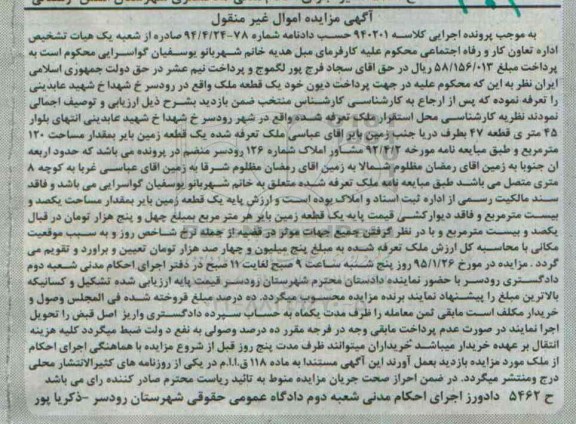 آگهی مزایده اموال غیر منقول
به موجب پرونده اجرایی کلاسه ۹۴۰۲۰۱ حسب دادنامه شماره ۷۸-۹۴/۴/۲۴ صادره از شعبه یک هیات تشخیص
اداره تعاون کار و رفاه اجتماعی محکوم علیه کارفرمای مبل هدیه خانم شهربانو یوسفیان گواسرایی محکوم است به
پرداخت مبلغ ۵۸/۱۵۶/۰۱۳ ریال در حق اقای سجاد فرج پور لکموج و پرداخت نیم عشر در حق دولت جمهوری اسلامی
ایران نظر به این که محکوم علیه در جهت پرداخت دیون خود یک قطعه ملک واقع در رودسر خ شهدا خ شهید عابدینی
را تعرفه نموده که پس از ارجاع به کارشناسی کارشناس منتخب ضمن بازدید بشرح ذیل ارزیابی و توصیف اجمالی
نمودند نظریه کارشناسی محل استقرار ملک تعرفه شده واقع در شهر رودسر خ شهدا خ شهید عابدینی انتهای بلوار
۴۵ متری قطعه ۴۷ بطرف دریا جنب زمین بایر اقای عباسی ملک تعرفه شده یک قطعه زمین بایر بمقدار مساحت ۱۲۰
مترمربع و طبق مبایعه نامه مورخه ۹۲/۴/۲ مشاور املاک شماره ۱۲۶ رودسر منضم در پرونده می باشد که حدود اربعه
ان جنوبا به زمین اقای رمضان مظلوم شمالا به زمین اقای رمضان مظلوم شرقا به زمین اقای عباسی غربا به کوچه ۸
متری متصل می باشد طبق مبایعه نامه ملک تعرفه شده متعلق به خانم شهربانو یوسفیان گواسرایی می باشد و فاقد
سند مالکیت رسمی از اداره ثبت اسناد و املاک بوده است و ارزش پایه یک قطعه زمین بایر بمقدار مساحت یکصد و
بیست مترمربع و فاقد دیوارکشی قیمت پایه یک قطعه زمین بایر هر متر مربع بمبلغ چهل و پنج هزار تومان در قبال
یکصد و بیست مترمربع و با در نظر گرفتن جمیع جهات موثر در قضیه از جمله نرخ شاخص روز و به سبب موقعیت
مکانی با محاسبه کل ارزش ملک تعرفه شده به مبلغ پنج میلیون و چهار صد هزار تومان تعیین و براورد و تقویم می
گردد . مزایده در مورخ ۹۵/۱/۲۶ روز پنج شنبه ساعت ۹ صبح لغایت ۱۱ صبح در دفتر اجرای احکام مدنی شعبه دوم
دادگستری رودسر با حضور نماینده دادستان محترم شهرستان رودسر قیمت پایه ارزیابی شده تشکیل و کسانیکه
بالاترین مبلغ را پیشنهاد نمایند برنده مزایده محسوب میگردد. ده درصد مبلغ فروخته شده فی المجلس وصول و
خریدار مکلف است مابقی ثمن معامله را ظرف مدت یکماه به حساب سپرده دادگستری واریز اصل قبض را تحویل
اجرا نمایند در صورت عدم پرداخت مابقی وجه در فرجه مقرر ده درصد وصولی به نفع دولت ضبط میگردد کلیه هزینه
انتقال بر عهده خریدار میباشد خریداران میتوانند ظرف مدت پنج روز قبل از شروع مزایده با هماهنگی اجرای احکام
از ملک مورد مزایده بازدید بعمل آورند این آگهی مستندا به ماده ۱۱۸ ق.ا.ا.م در یکی از روزنامه های کثیرالانتشار محلی
درج ومنتشر میگردد. در ضمن احراز صحت جریان مزایده منوط به تائید ریاست محترم صادر کننده رای می باشد
ح ۵۴۶۲ دادورز اجرای احکام مدنی شعبه دوم دادگاه عمومی حقوقی شهرستان رودسر -ذکریا پور